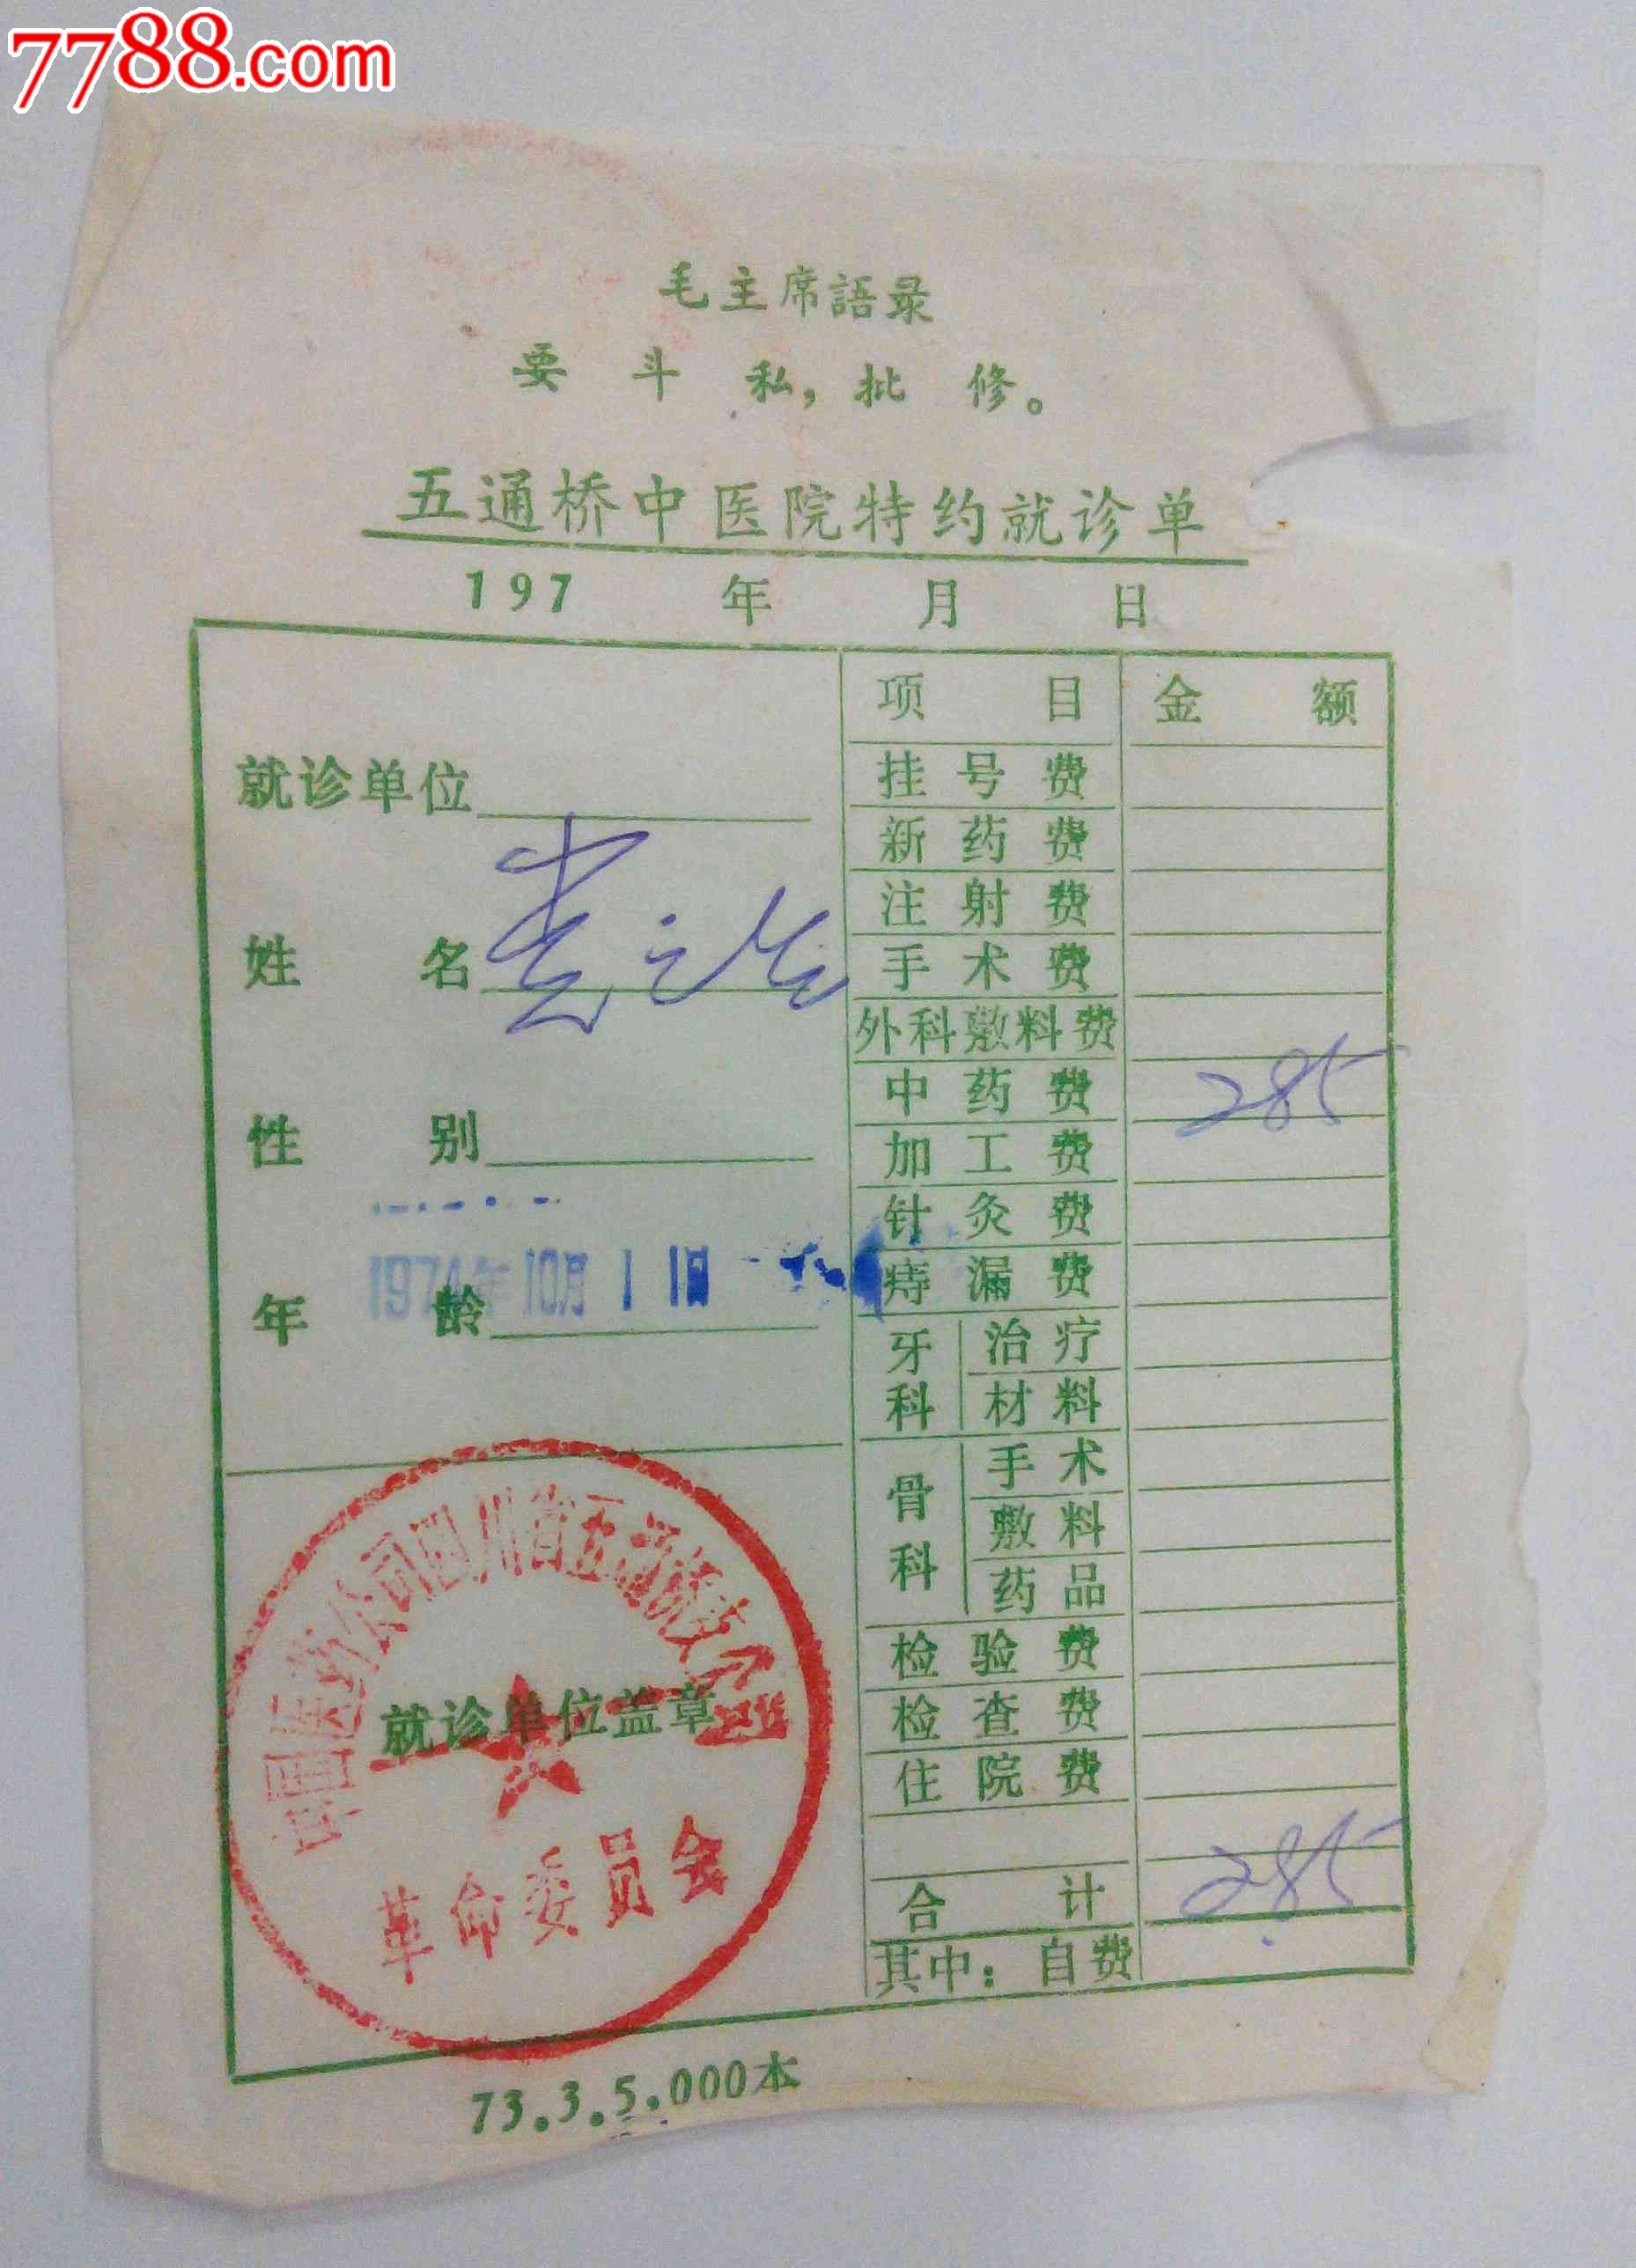 7788.com
毛主席語录
要斗私，批修。
五通桥中医院特约就诊单
197 年 月 日
项目 金额
就诊单位
挂号费
新药费
注射费
姓名
手术费
外科敷料费
中药费 285
性别
加工费
针灸费
1974年10月11日
年龄
痔漏费
牙科 治疗
材料
骨科 手术
敷料
药品
检验费
检查费
住院费
合计 285
其中：自费
中国医药公司四川省五通桥支公司
就诊单位盖章
革命委员会
73.3.5.000本